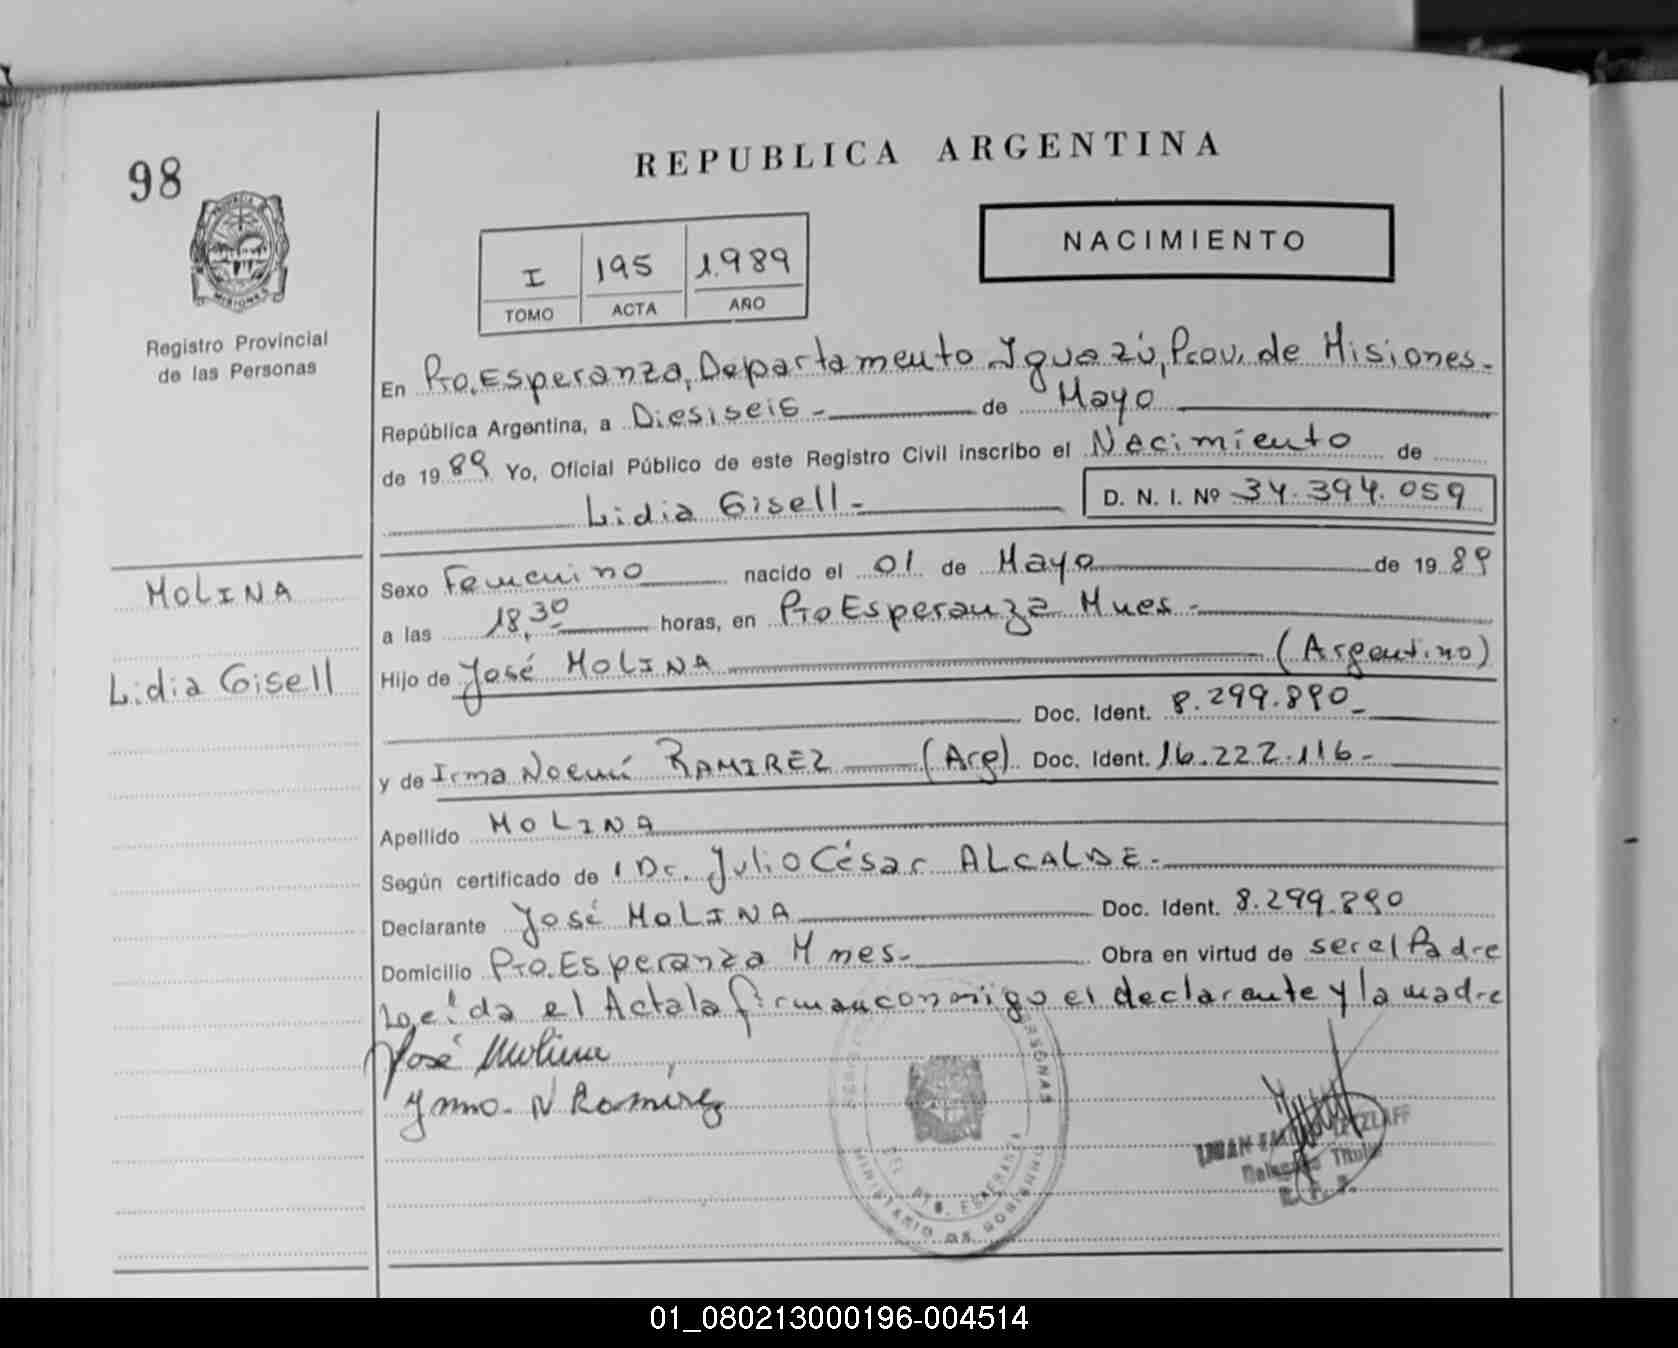 98
REPUBLICA ARGENTINA
NACIMIENTO
I 195 1.989
TOMO ACTA AÑO
Registro Provincial
de las Personas
En Pto. Esperanza, Departamento Iguazú, Prov. de Misiones.
República Argentina, a Diesiseis - de Mayo
de 1989 Yo, Oficial Público de este Registro Civil inscribo el Nacimiento de
Lidia Gisell - D. N. I. Nº 34.394.059
MOLINA
Lidia Gisell
Sexo Femenino nacido el 01 de Mayo de 1989
a las 18,30 horas, en Pto Esperanza Mnes -
Hijo de José MOLINA (Argentino)
Doc. Ident. 8.299.890 -
y de Irma Noemí RAMIREZ (Arg) Doc. Ident. 16.222.116 -
Apellido MOLINA
Según certificado de Dr. Julio César ALCALDE -
Declarante José MOLINA Doc. Ident. 8.299.890
Domicilio Pto. Esperanza Mnes. Obra en virtud de ser el Padre
Leída el Acta la firman conmigo el declarante y la madre
José Molina
N Ramirez
PERSONAS
DEL PTO. ESPERANZA
MINISTERIO DE GOBIERNO
JUAN
Delegado Titular
01_080213000196-004514